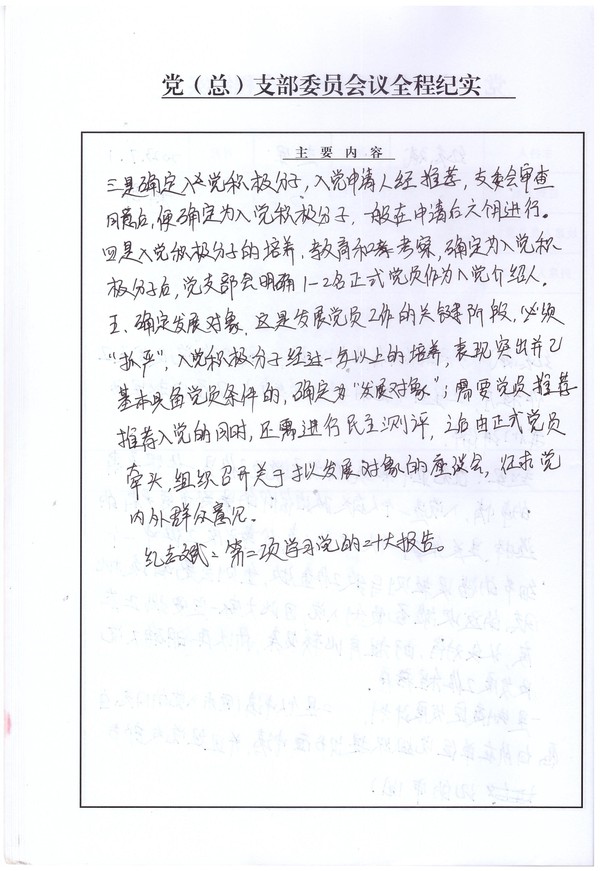 党（总）支部委员会议全程纪实
主要内容
三是确定入党积极分子，入党申请人经推荐，支委会审查
同意后，便确定为入党积极分子，一般在申请后六个月进行。
四是入党积极分子的培养、教育和考察，确定为入党积
极分子后，党支部会明确1-2名正式党员作为入党介绍人。
五、确定发展对象。这是发展党员工作的关键阶段，必须
“抓严”，入党积极分子经过一年以上的培养，表现突出并已
基本具备党员条件的，确定为“发展对象”；需要党员推荐
推荐入党的同时，还需进行民主测评，之后由正式党员
牵头，组织召开关于拟发展对象的座谈会，征求党
内外群众意见。
斌：第二项学习党的二十大报告。